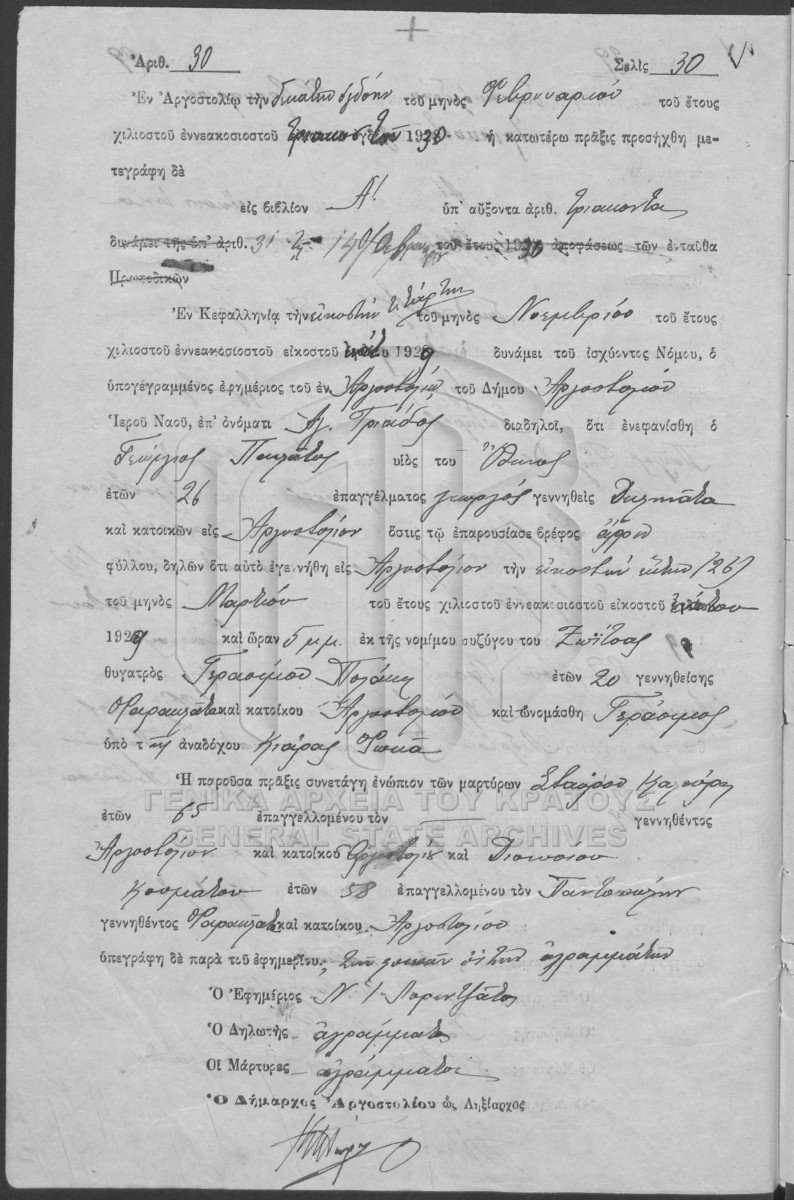 Ἀριθ. 30 Σελὶς 30
Ἐν Ἀργοστολίῳ τὴν δεκάτην ὀγδόην τοῦ μηνὸς Φεβρουαρίου τοῦ ἔτους
χιλιοστοῦ ἐννεακοσιοστοῦ τριακοστοῦ 1930 ἡ κατωτέρω πρᾶξις προσήχθη με-
τεγράφη δὲ
εἰς βιβλίον Α! ὑπ' αὔξοντα ἀριθ. τριακοντα
δυνάμει τῆς ὑπ' ἀριθ. 31 τοῦ ἔτους 1930 ἀποφάσεως τῶν ἐνταῦθα
Πρωτοδικῶν
Ἐν Κεφαλληνίᾳ τὴν εἰκοστήν τετάρτην τοῦ μηνὸς Νοεμβρίου τοῦ ἔτους
χιλιοστοῦ ἐννεακοσιοστοῦ εἰκοστοῦ 1929 δυνάμει τοῦ ἰσχύοντος Νόμου, ὁ
ὑπογεγραμμένος ἐφημέριος τοῦ ἐν Ἀργοστολίῳ τοῦ Δήμου Ἀργοστολίου
Ἱεροῦ Ναοῦ, ἐπ' ὀνόματι Ἁγ. Τριάδος διαδηλοῖ, ὅτι ἐνεφανίσθη ὁ
Γεώργιος υἱὸς τοῦ
ἐτῶν 26 ἐπαγγέλματος γεωργός γεννηθεὶς
καὶ κατοικῶν εἰς Ἀργοστόλιον ὅστις τῷ ἐπαρουσίασε βρέφος ἄρρεν
φύλλου, δηλῶν ὅτι αὐτὸ ἐγεννήθη εἰς Ἀργοστόλιον τὴν εἰκοστήν ἕκτην (26)
τοῦ μηνὸς Μαρτίου τοῦ ἔτους χιλιοστοῦ ἐννεακοσιοστοῦ εἰκοστοῦ ἐνάτου
1929 καὶ ὥραν 5 μμ. ἐκ τῆς νομίμου συζύγου του Ζωΐτσας
θυγατρὸς Γερασίμου ἐτῶν 20 γεννηθείσης
Φαρακλᾶτα καὶ κατοίκου Ἀργοστολίου καὶ ὠνομάσθη Γεράσιμος
ὑπὸ τῆς ἀναδόχου Κιάρας Φωκᾶ
Ἡ παροῦσα πρᾶξις συνετάγη ἐνώπιον τῶν μαρτύρων Σταύρου
ἐτῶν 65 ἐπαγγελλομένου τὸν — γεννηθέντος
Ἀργοστόλιον καὶ κατοίκου Ἀργοστολίου καὶ Διονυσίου
Κουμάτου ἐτῶν 58 ἐπαγγελλομένου τὸν Παντοπώλην
γεννηθέντος Φαρακλᾶτα καὶ κατοίκου Ἀργοστολίου
ὑπεγράφη δὲ παρὰ τοῦ ἐφημερίου, τῶν λοιπῶν ὄντων ἀγραμμάτων
Ὁ Ἐφημέριος Ν. Ι. Λορεντζᾶτος
Ὁ Δηλωτής ἀγράμματος
Οἱ Μάρτυρες ἀγράμματοι
Ὁ Δήμαρχος Ἀργοστολίου ὡς Ληξίαρχος
ΓΕΝΙΚΑ ΑΡΧΕΙΑ ΤΟΥ ΚΡΑΤΟΥΣ
GENERAL STATE ARCHIVES